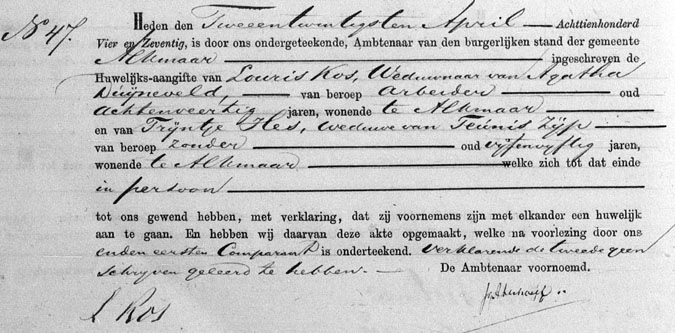 No 47. Heden den Tweeentwintigsten April Achttienhonderd
Vier en Zeventig, is door ons ondergeteekende, Ambtenaar van den burgerlijken stand der gemeente
Alkmaar ingeschreven de
Huwelijks-aangifte van Louris Kos, Weduwnaar van Agatha
Duijneveld, van beroep arbeider oud
achtenveertig jaren, wonende te Alkmaar
en van Trijntje Hes, weduwe van Teunis Zijp
van beroep zonder oud vijfenvijftig jaren,
wonende te Alkmaar welke zich tot dat einde
in persoon
tot ons gewend hebben, met verklaring, dat zij voornemens zijn met elkander een huwelijk
aan te gaan. En hebben wij daarvan deze akte opgemaakt, welke na voorlezing door ons
en den eersten Comparant is onderteekend. Verklarende de tweede geen
schrijven geleerd te hebben. De Ambtenaar voornoemd.
L Kos